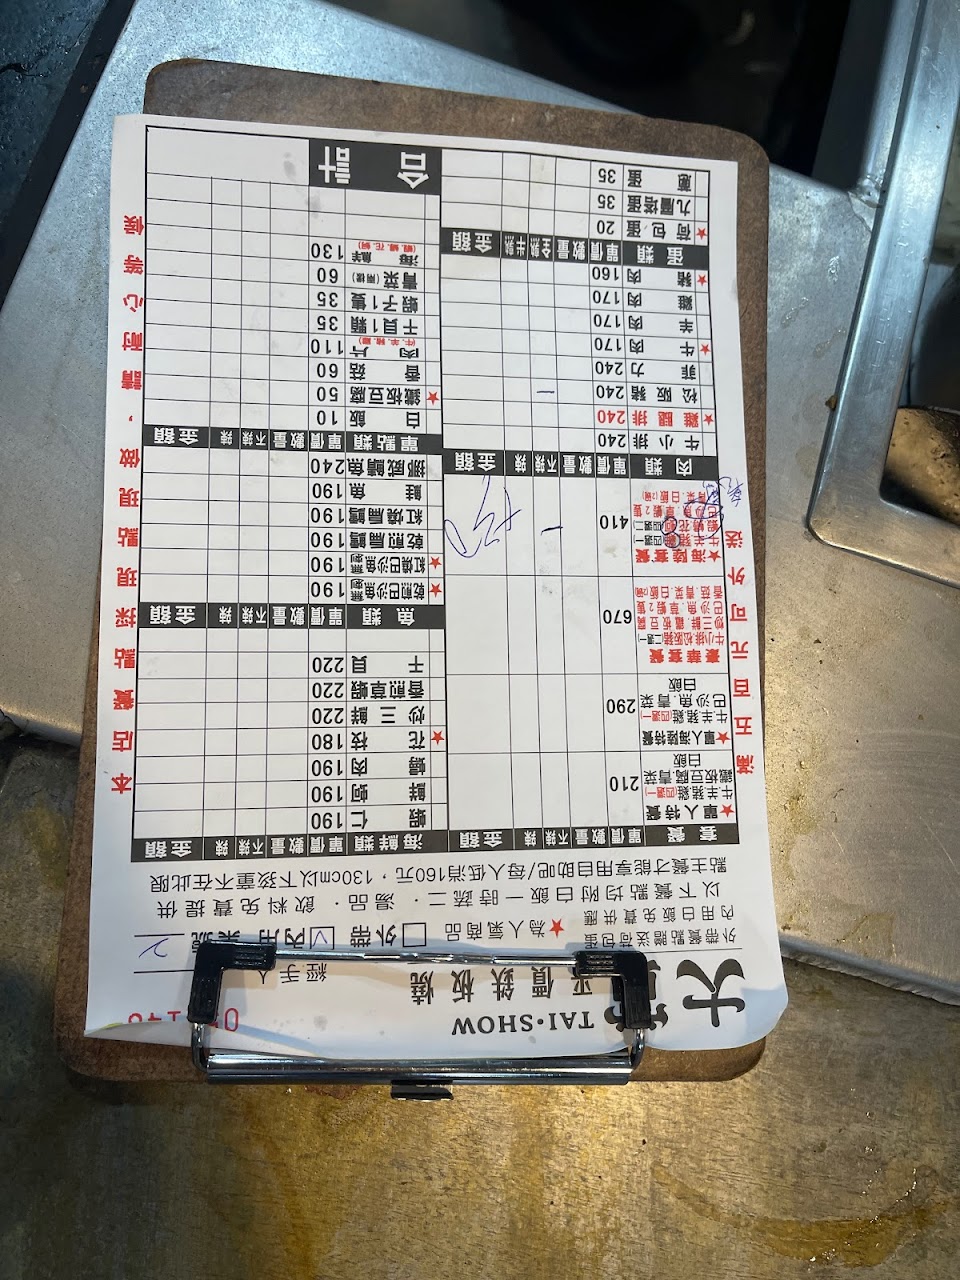 大
平價鉄板燒
TAI·SHOW
經手人
外帶餐點贈送荷包蛋
內用白飯免費供應
★為人氣商品
外帶
內用
以下餐點均附白飯一時蔬二．湯品．飲料免費提供
點主餐才能享用自助吧/每人低消160元，130cm以下孩童不在此限
套餐 單價 數量 不辣 辣 金額
★單人特餐 210
牛羊豬雞(四選一)
鐵板豆腐青菜
白飯
★單人海陸特餐 290
牛羊豬雞(四選一)
巴沙魚.青菜
白飯
豪華套餐 670
牛小排松阪豬(二選一)
炒三鮮.鐵板豆腐
巴沙魚.草蝦2隻
香菇.青菜.白飯(2碗)
★海陸套餐 410
肉類 單價 數量 不辣 辣 金額
牛小排 240
★雞腿排 240
松阪豬 240
菲力 240
★牛肉 170
羊肉 170
雞肉 170
★豬肉 160
蛋類 單價 數量 全熟 半熟 金額
★荷包蛋 20
九層塔蛋 35
蔥蛋 35
海鮮類 單價 數量 不辣 辣 金額
蝦仁 190
鮮蚵 190
蟮肉 190
★花枝 180
炒三鮮 220
香煎草蝦 220
干貝 220
魚類 單價 數量 不辣 辣 金額
★乾煎巴沙魚(無刺) 190
★紅燒巴沙魚(無刺) 190
乾煎扁鱈 190
紅燒扁鱈 190
鮭魚 190
挪威鯖魚 240
單點類 單價 數量 不辣 辣 金額
白飯 10
★鐵板豆腐 50
香菇 60
肉片(牛.羊.豬.雞) 110
干貝1顆 35
蝦子1隻 35
青菜(兩樣) 60
海鮮 130
合計
滿五百元可外送
本店餐點採現點現做，請耐心等候